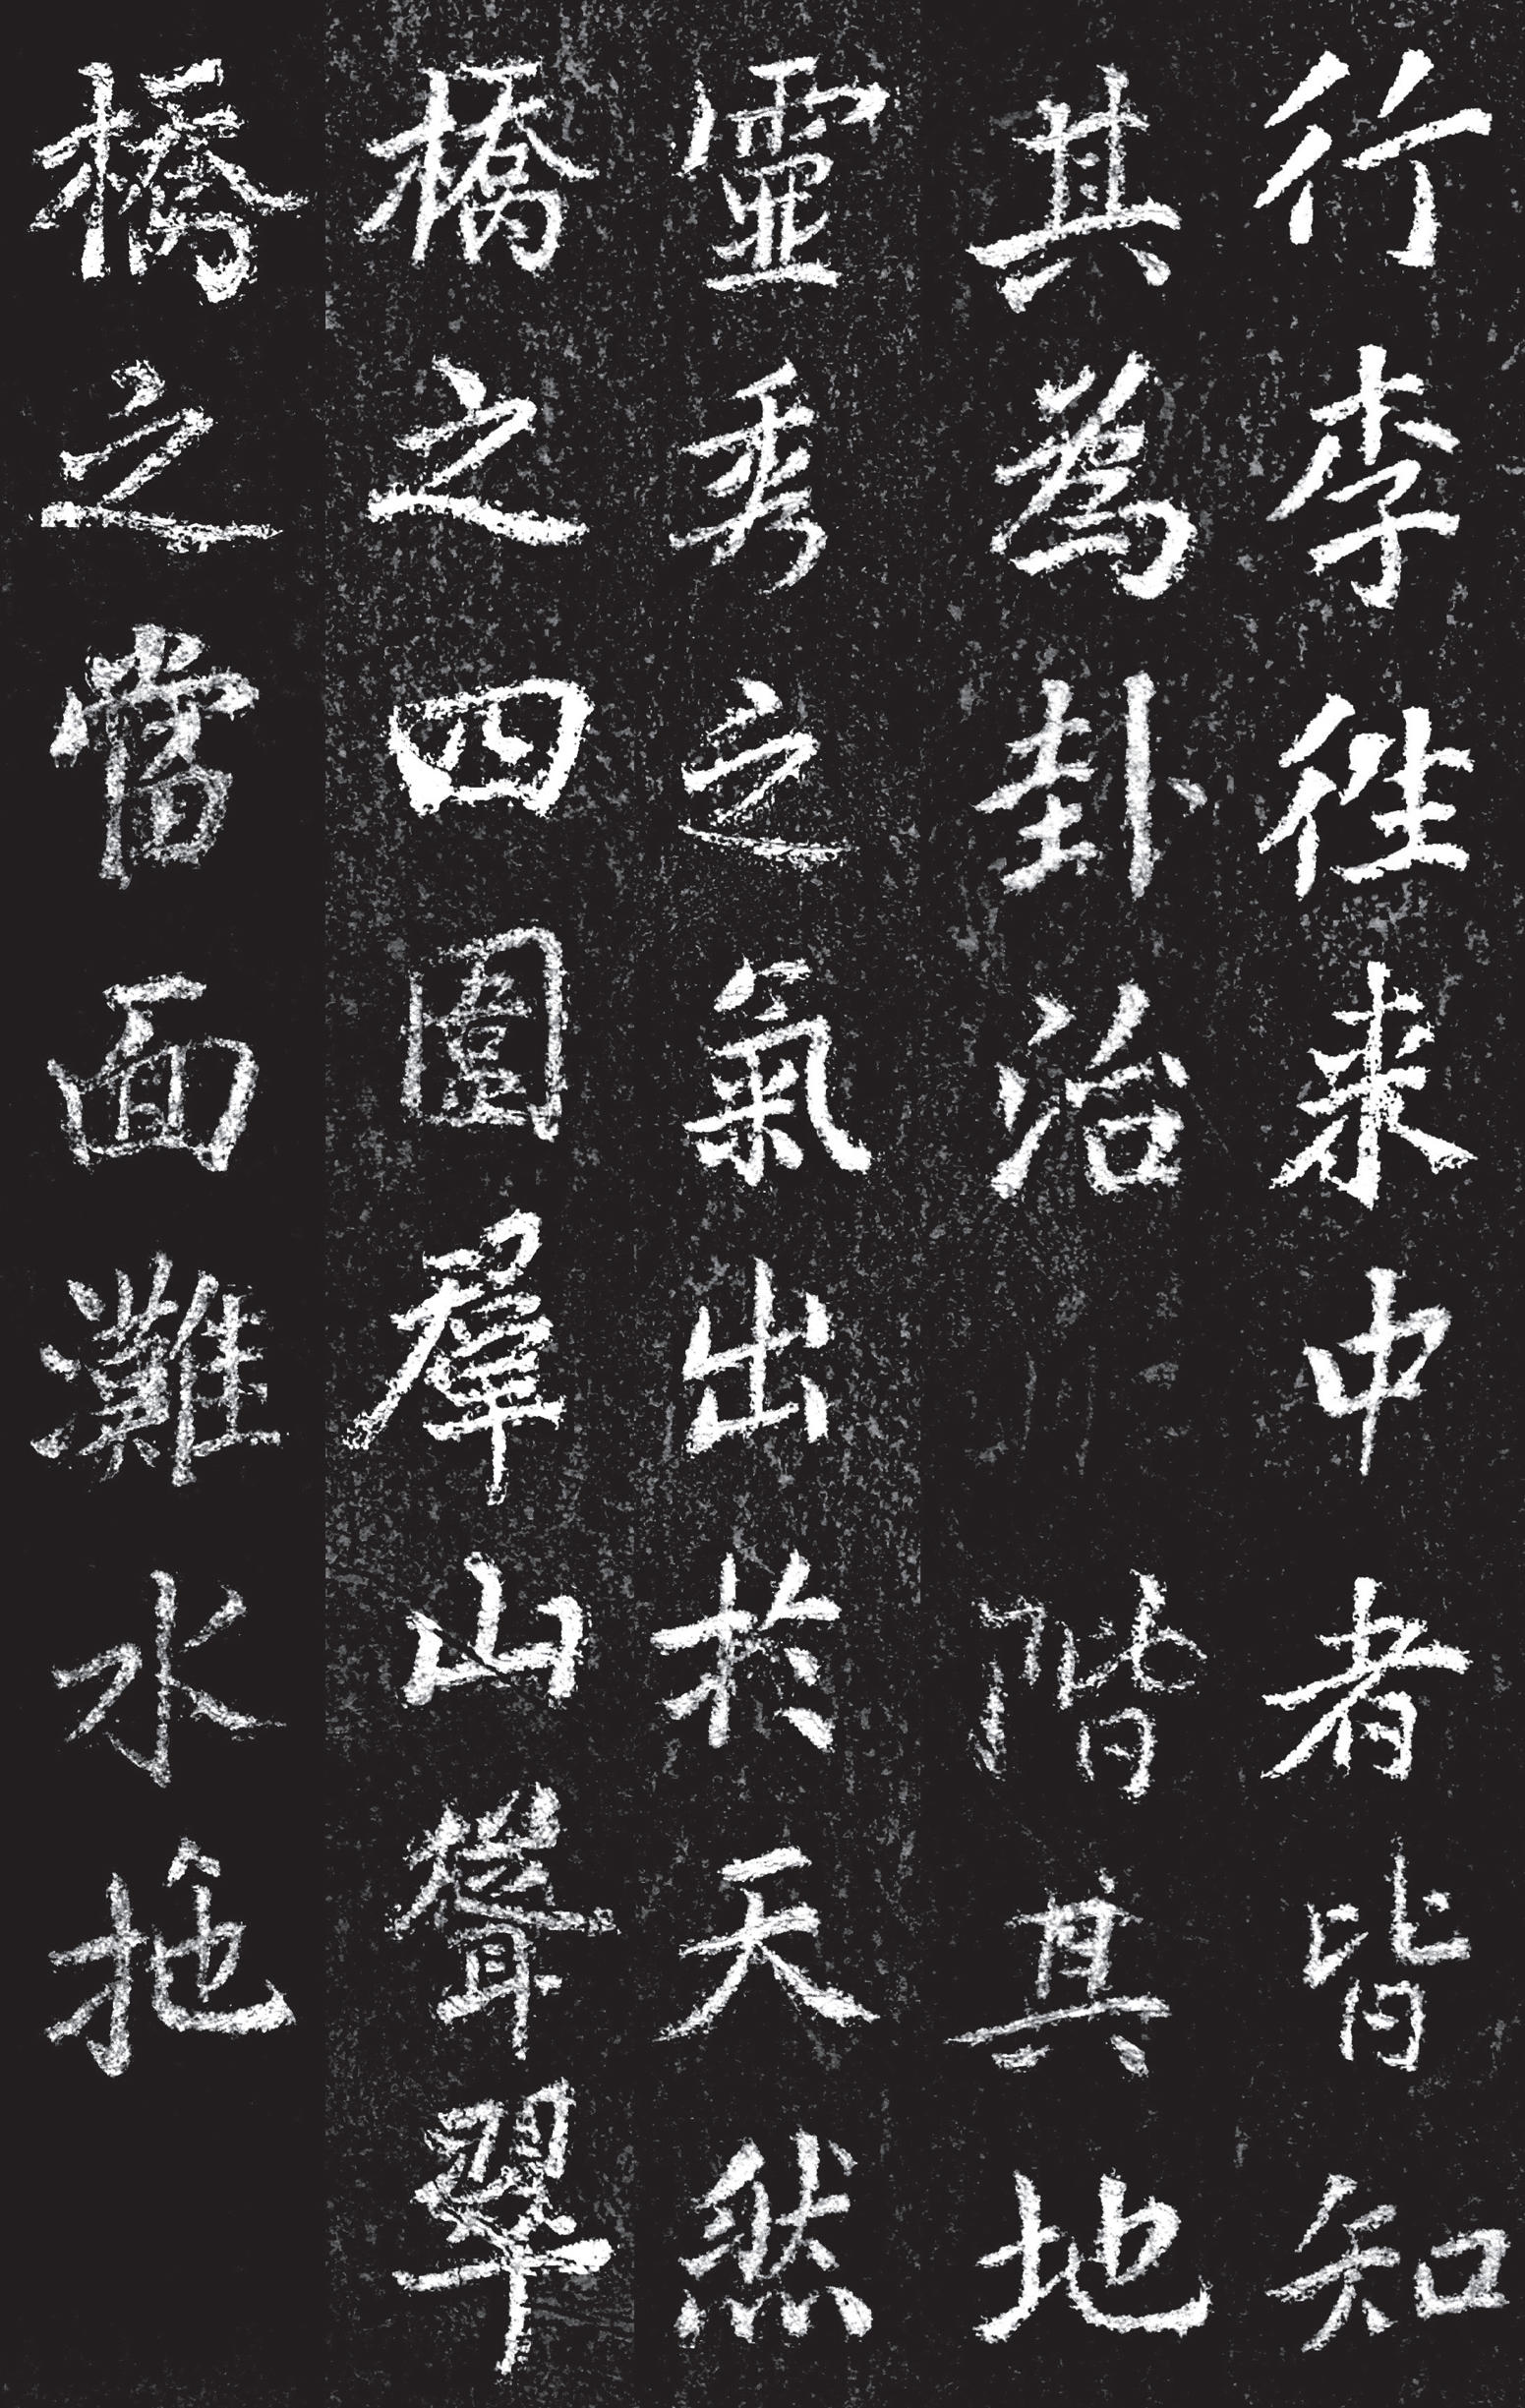 行李徃来中者皆知
其為卦治階其地
靈秀之氣出於天然
橋之四圍羣山聳翠
橋之當面灘水拖